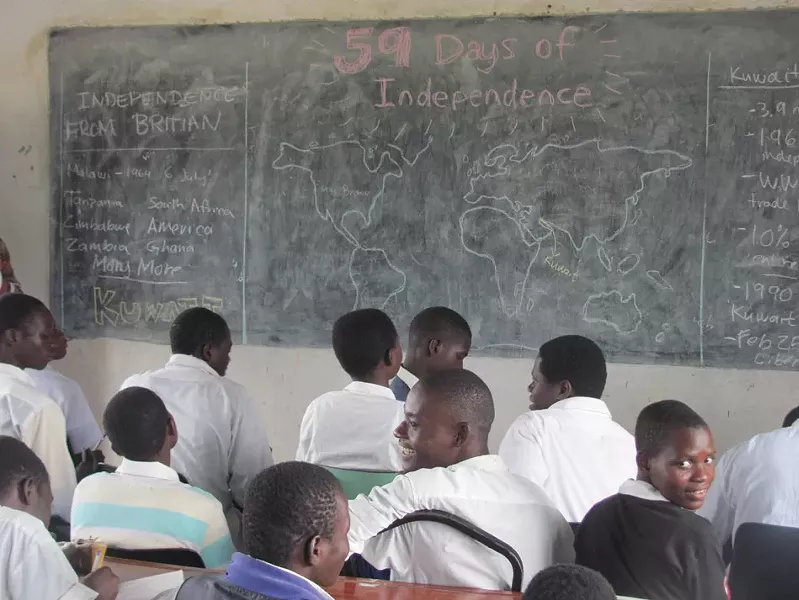 59 Days of
Independence
INDEPENDENCE
FROM BRITIAN
Malawi - 1964 6 July
Tanzania South Africa
Zimbabwe America
Zambia Ghana
Many More
KUWAIT
Kuwait
Kuwait
- 3.9
- 196
indep
- W.W
trade
- 10%
- 1990
Kuwait
- Feb 25
Liber